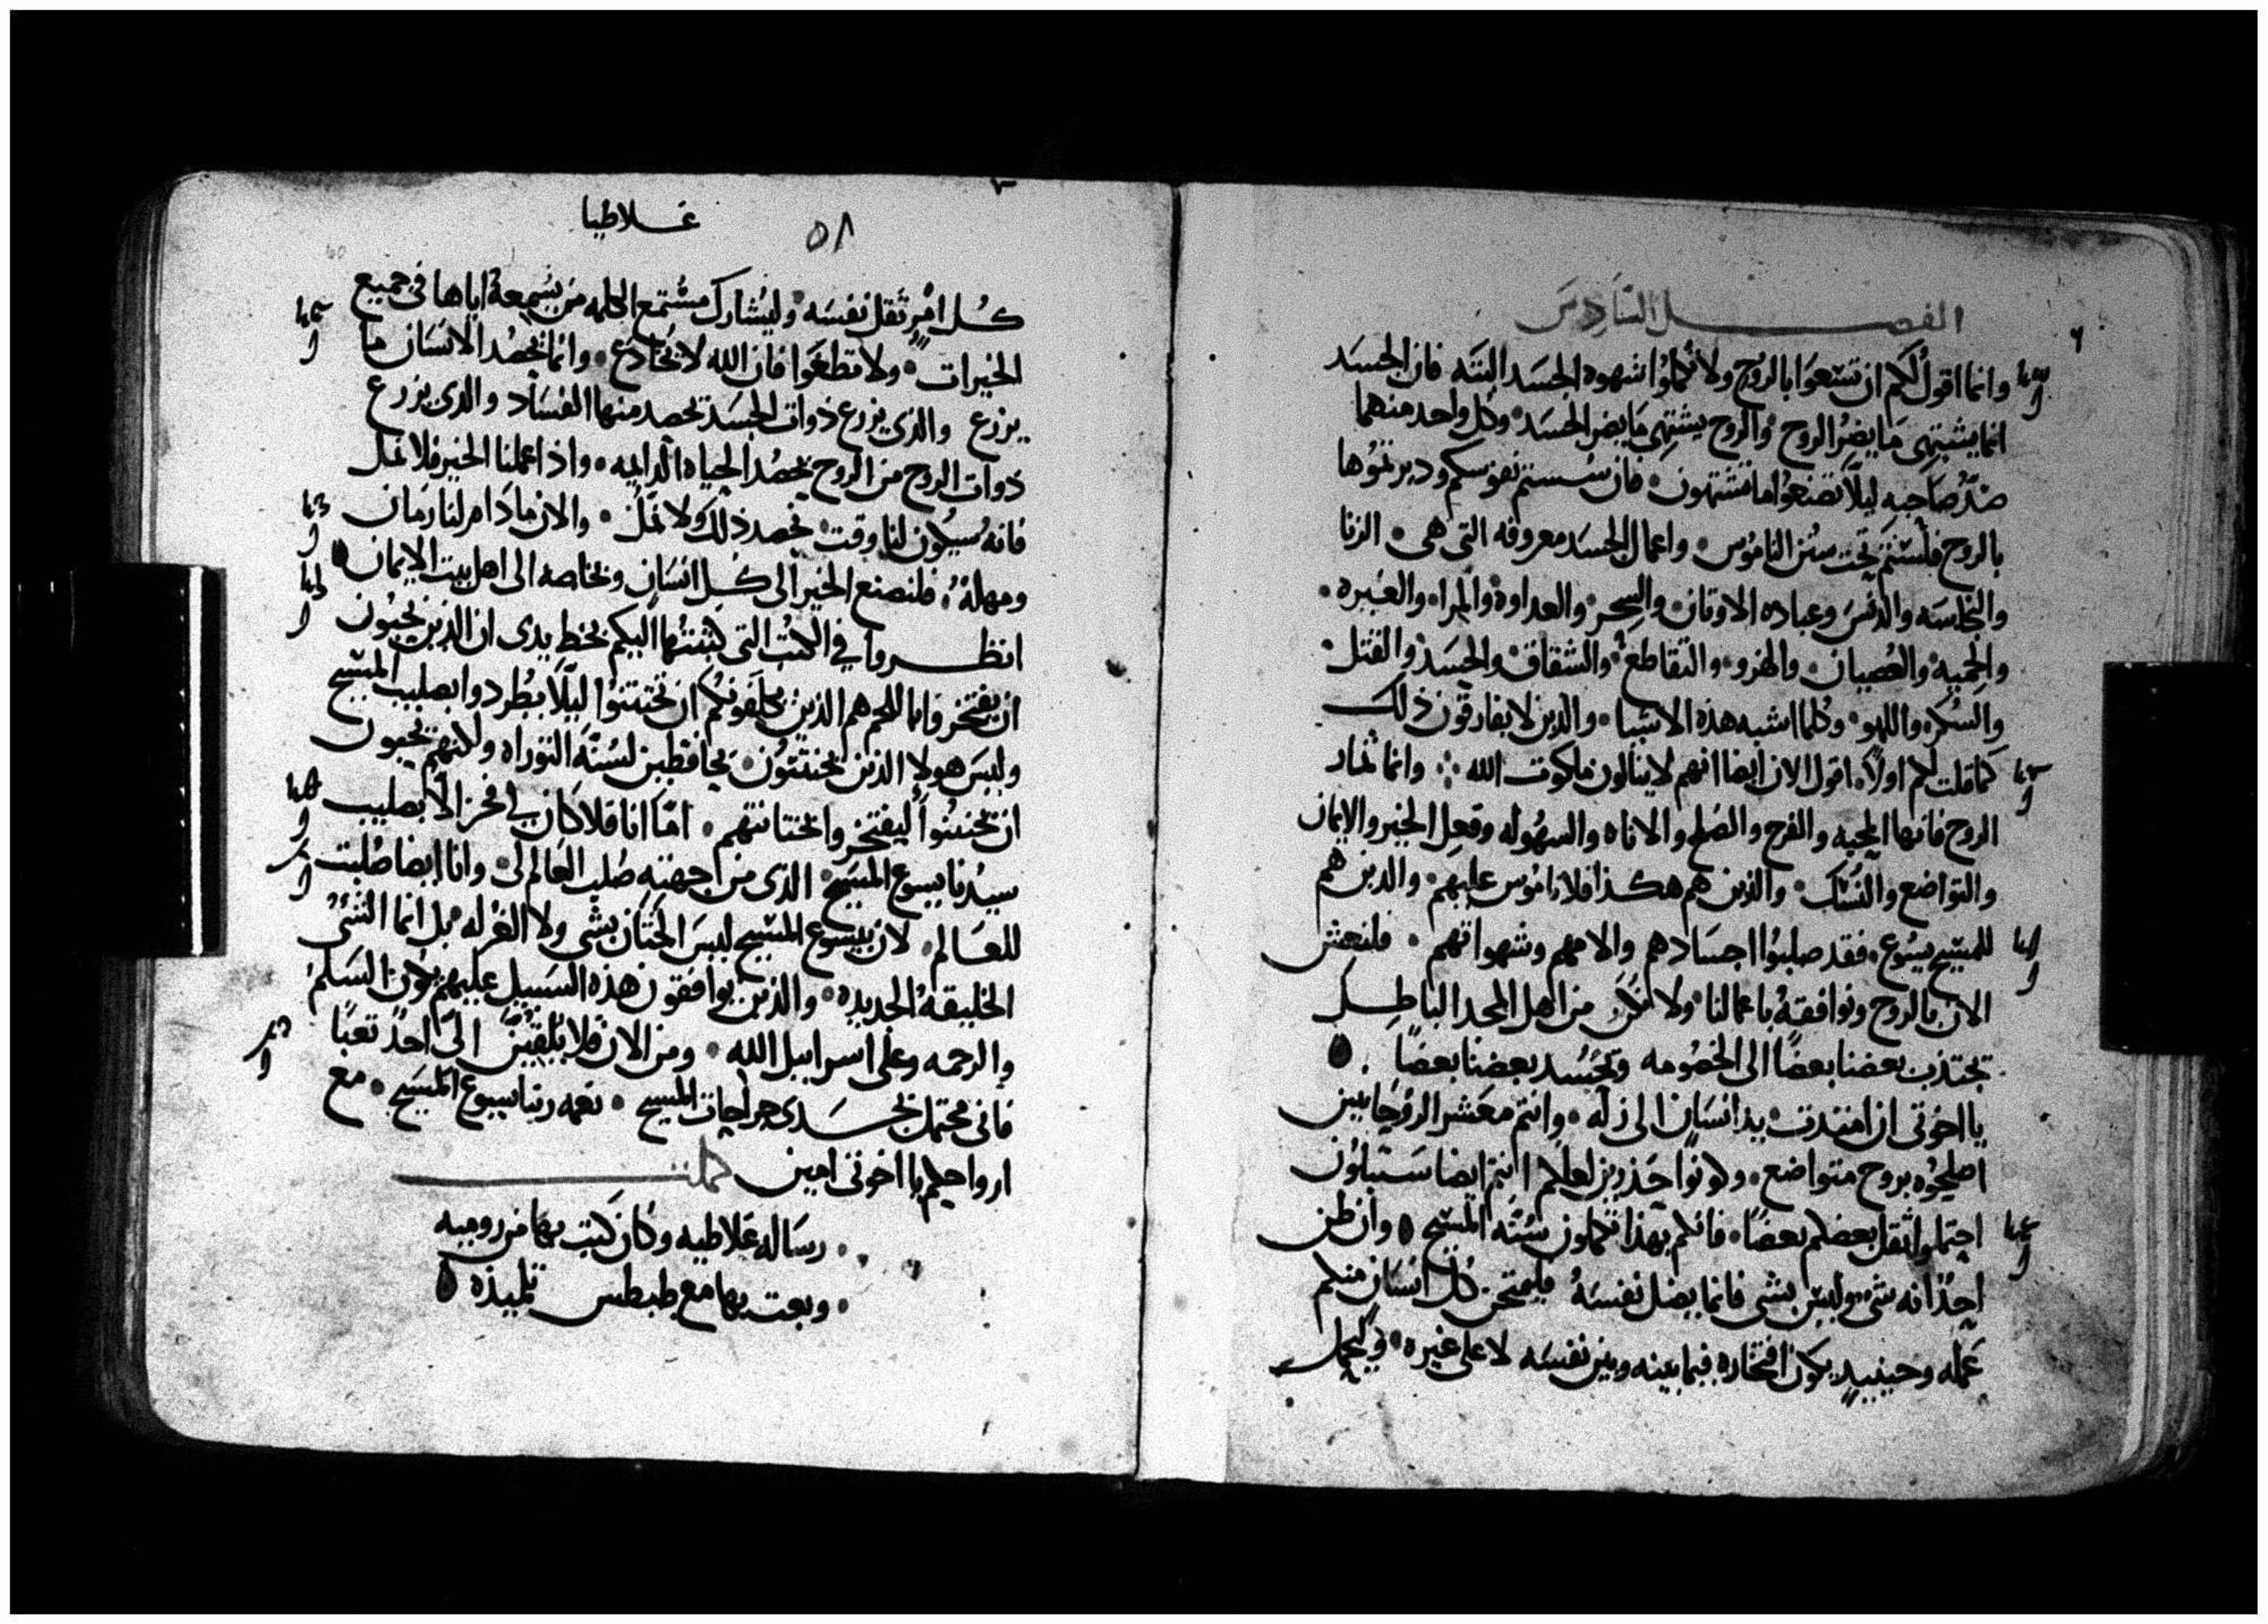 الفصل السادس
وانما اقول لكم ان تسعوا بالروح ولا تكملوا شهوه الجسد البته فان الجسد
انما يشتهي ما يضر الروح والروح يشتهي ما يضر الجسد وكل واحد منهما
ضد صاحبه ليلا تصنعوا ما تشتهون فان سستم نفوسكم ودبرتموها
بالروح فلستم تحت سنن الناموس واعمال الجسد معروفه التي هي الزنا
والنجاسه والدنس وعباده الاوثان والسحر والعداوة والمراء والغيره
والحميه والعصيان والهزو والتقاطع والشقاق والحسد والقتل
والسكر واللهو وكلما اشبه هذه الاشيا والذين لا يفارقون ذلك
كما قلت لكم اولاً اقول الان ايضا انهم لا ينالون ملكوت الله وانما ثمار
الروح فانها المحبه والفرح والصلح والاناه والسهوله وفعل الخير والايمان
والتواضع والنسك والذين هم هكذا فلا ناموس عليهم والذين هم
للمسيح يسوع فقد صلبوا اجسادهم والامهم وشهواتهم فلنعش
الان بالروح ونوافقه باعمالنا ولا نكن من اهل المجد الباطل
تجتذب بعضنا بعضًا الى الخصومه وتحسد بعضنا بعضًا
يا اخوتي ان امتدت يد انسان الى زله وانتم معشر الروحانيين
اصلحوه بروح متواضع وكونوا حذرين لعلكم انتم ايضا ستبلون
احتملوا ثقل بعضكم بعضًا فانكم بهذا تكملون سنه المسيح وان ظن
احدٌ انه شي وليس بشي فانما يضل نفسه فليمتحن كل انسان منكم
عمله وحينيذ يكون افتخاره فيما بينه وبين نفسه لا على غيره وليحمل
غلاطيا
٥٨
كل امرٍ ثقل نفسه وليشارك مستمع الكلمه من يسمعه اياها في جميع
الخيرات ولا تطغوا فان الله لا يخادع وانما يحصد الانسان ما
يزرع والذي يزرع ذوات الجسد تحصد منها الفساد والذي يزرع
ذوات الروح من الروح يحصد الحياه الدايمه واذا عملنا الخير فلا نمل
فانه سيكون لنا وقت نحصد ذلك ولا نمل والان ما دام لنا زمان
ومهلة فلنصنع الخير الى كل انسان وبخاصه الى اهل بيت الايمان
انظروا في الكتب التي كتبتها اليكم بخط يدي ان الذين يحبون
ان يفتخروا باللحم هم الذين يكلفونكم ان تختتنوا ليلا يطردوا بصليب المسيح
وليس هولا الذين يختتنون بحافظين لسنة التوراه ولكنهم يحبون
ان تختتنوا ليفتخروا بختانتهم امّا انا فلا كان لي فخر الا بصليب
سيدنا يسوع المسيح الذي من اجهته صلب العالم لي وانا ايضا صلبت
للعالم لان بيسوع المسيح ليس الختان بشي ولا الغرله بل انما الشي
الخليقة الجديده والذين يوافقون هذه السبيل عليهم يكون السلم
والرحمه وعلى اسراييل الله ومن الان فلا يلقين الى احدٌ تعبًا
فاني محتمل بجسدي جراحات المسيح نعمه ربنا يسوع المسيح مع
ارواحكم يا اخوتي امين كملت
رساله غلاطيه وكان كتب بها من روميه
وبعت بها مع طيطس تلميذه